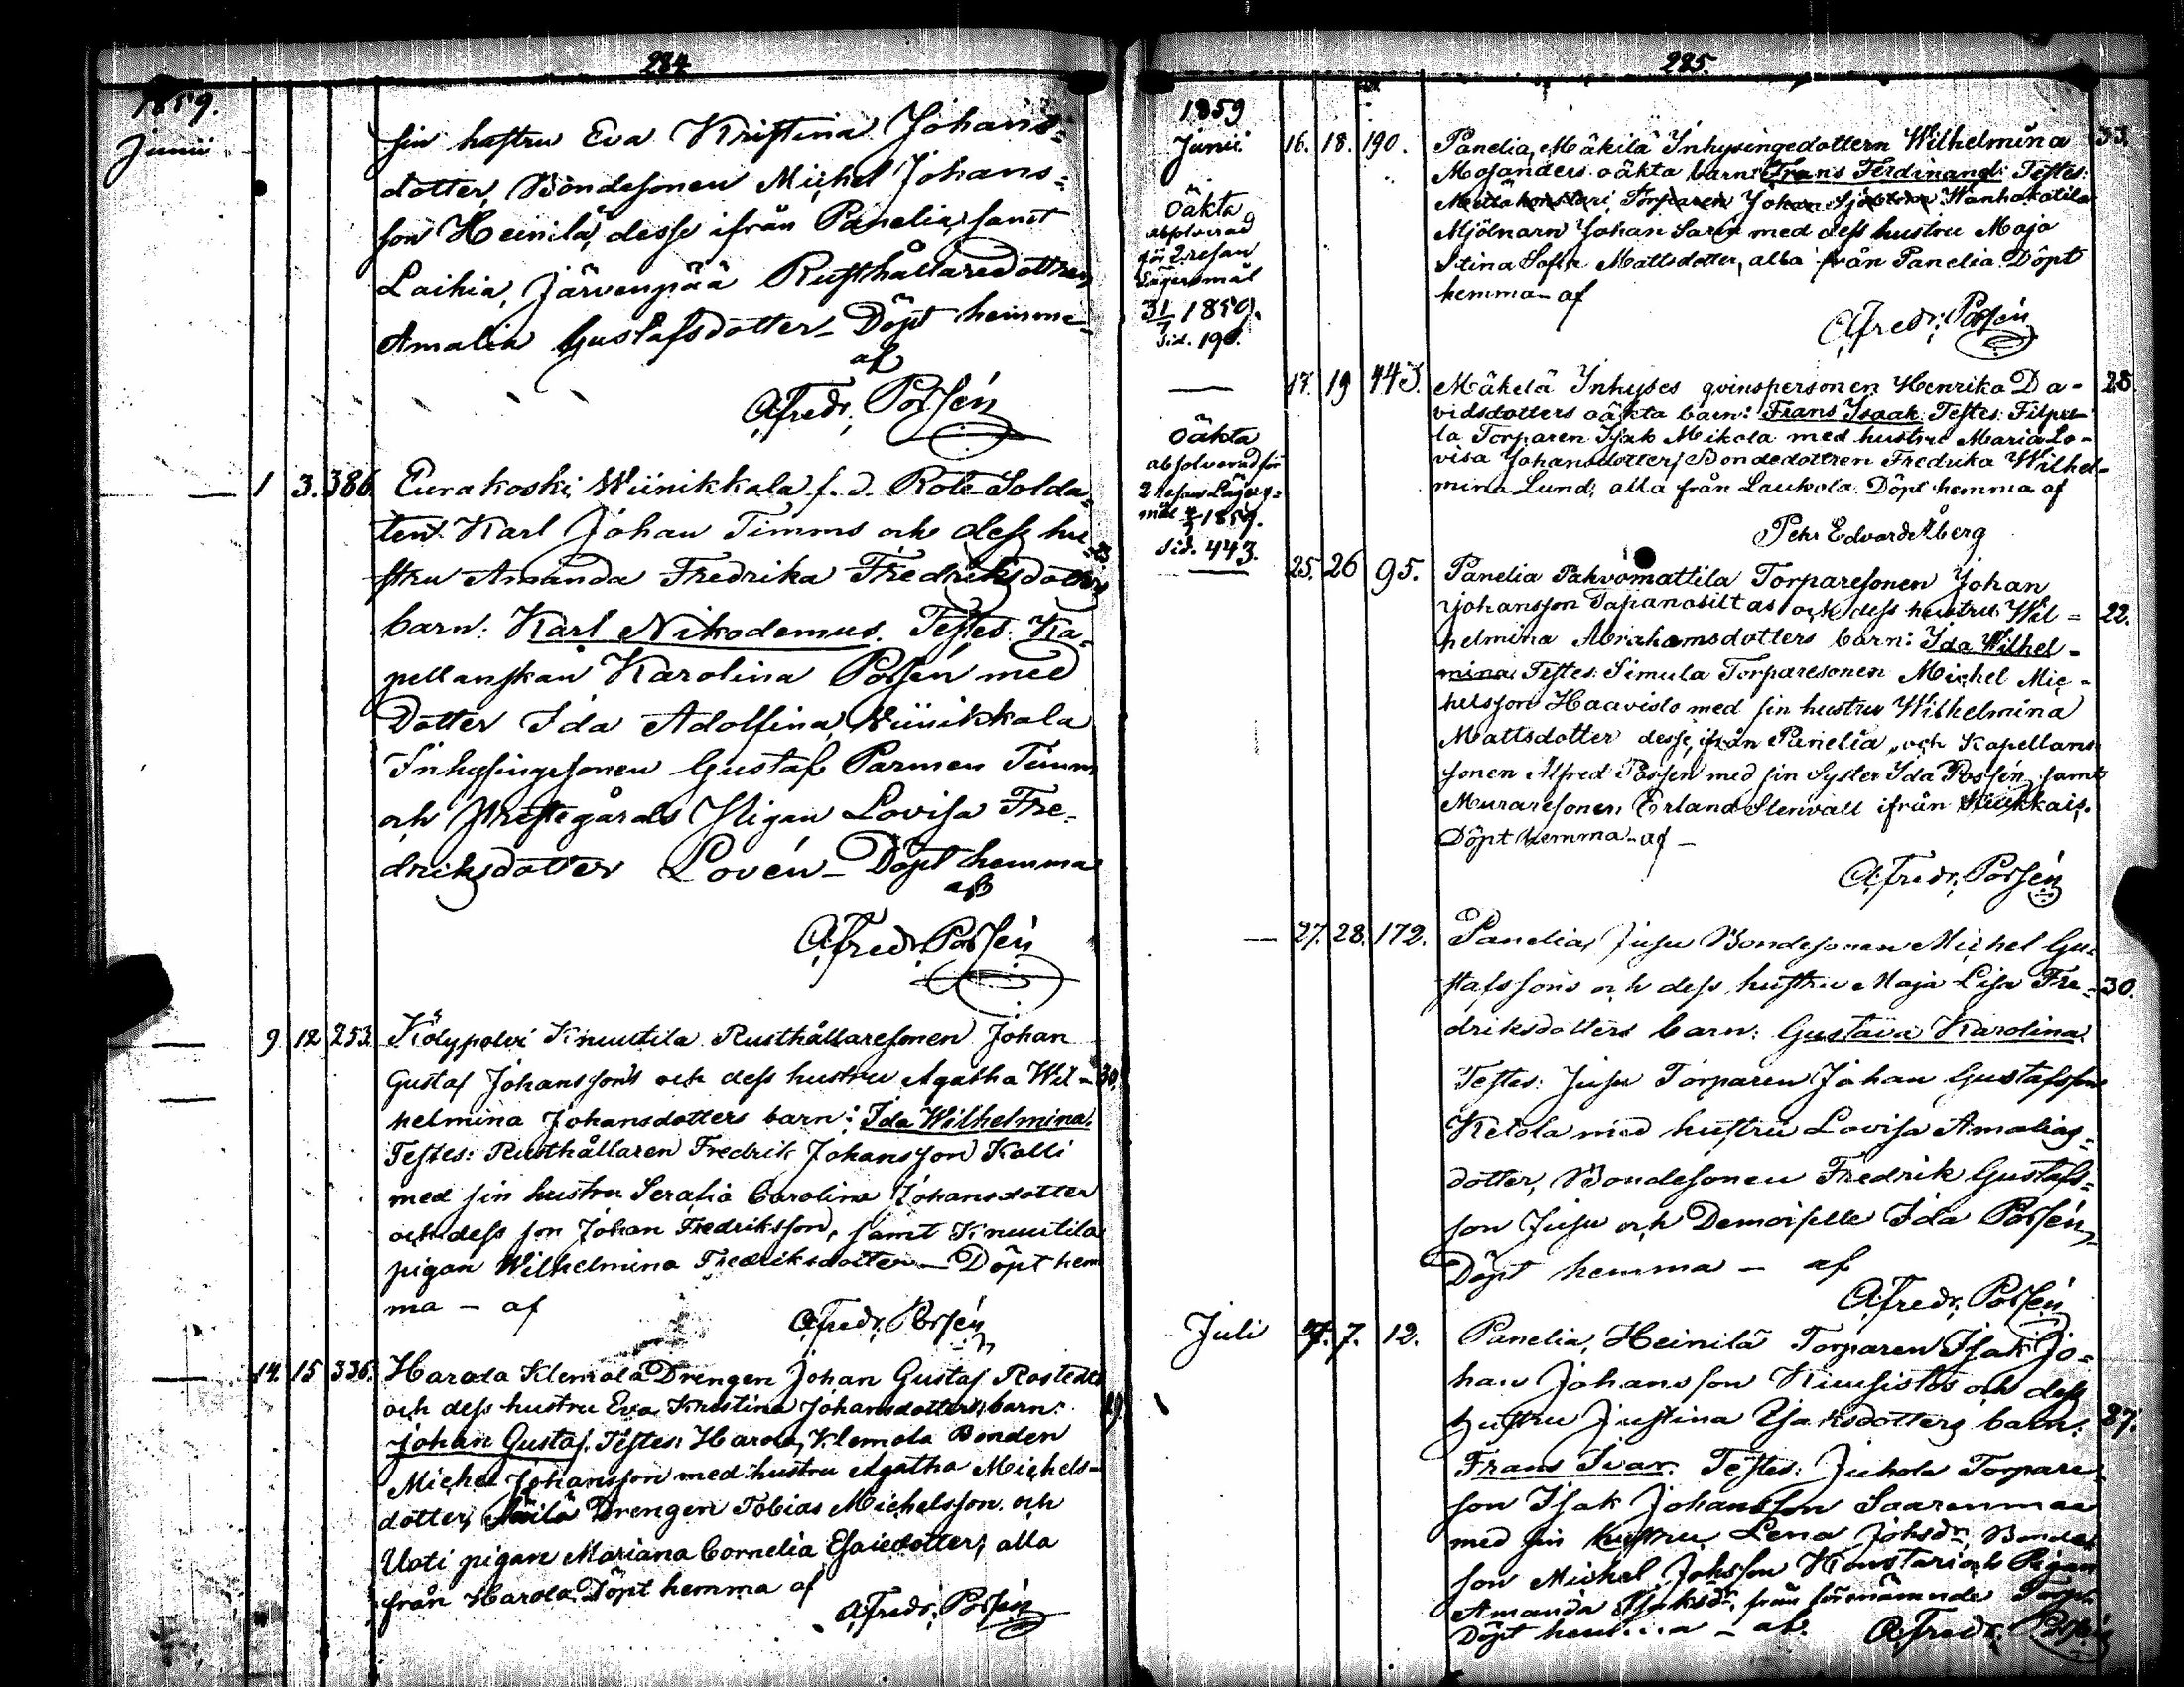 284
1859.
Junii
sin hustru Eva Kristina Johans-
dotter, Bondesonen Michel Johans-
son Heinilä, desse ifrån Panelia, samt
Laihia, Järvenpää Rusthållaredottren
Amalia Gustafsdotter_ Döpt hemma
af
A. Fredr. Possén
1 3. 386. Eurakoski, Wiinikkala f. d. Rote Solda-
ten Karl Johan Timms och dess hu-
stru Amanda Fredrika Fredriksdotters
barn: Karl Nikodemus. Testes: Ka-
pellanskan Karolina Possén med
Dotter Ida Adolfina, Wiinikkala
Inhysingesonen Gustaf Parmen Timm
och Prestegårds Pigan Lovisa Fre-
driksdotter Lovén_ Döpt hemma
af
A. Fredr. Possén
9 12 253. Kölypolvi Knuutila Rusthållaresonen Johan
Gustaf Johanssons och dess hustru Agatha Wil- 30.
helmina Johansdotters barn: Ida Wilhelmina.
Testes: Rusthållaren Fredrik Johansson Kalli
med sin hustru Serafia Carolina Johansdotter
och dess son Johan Fredriksson, samt Knuutila
pigan Wilhelmina Fredriksdotter_ Döpt hem
ma _ af
A. Fredr. Possén
14. 15 336. Harola Klemola Drengen Johan Gustaf Rostedts
och dess hustru Eva Kristina Johansdotters barn:
Johan Gustaf. Testes: Harola, Klemola Bonden
Michel Johansson med hustru Agatha Michels-
dotter, Drengen Tobias Michelsson och
Uoti pigan Mariana Cornelia Esaiedotter, alla
från Harola. Döpt hemma af
A. Fredr. Possén
285.
1859
Junii 16. 18. 190. Panelia, Mäkilä Inhysingedottern Wilhelmina 33.
Mosanders oäkta barn: Frans Ferdinand: Testes:
Torparen Johan Wanhakatila
Mjölnarn Johan Sarin med dess hustru Maja
Stina Sofia Mattsdotter, alla från Panelia. Döpt
hemma_ af
A. Fredr. Possén
Oäkta
absolverad
för 2. resan
Lägersmål
31/7 1859.
Sid. 190.
17. 19 443. Mäkelä Inhyses qvinspersonen Henrika Da- 28.
vidsdotters oäkta barn: Frans Isaak. Testes: Filpu-
la Torparen Isak Mikola med hustru Maria Lo-
visa Johansdotter, Bondedottren Fredrika Wilhel-
mina Lund, alla från Laukola. Döpt hemma af
Petr Edvard Åberg
Oäkta
absolverad för
2 resan Lägers-
mål 1859.
Sid. 443.
25. 26 95. Panelia Pahvomattila Torparesonen Johan
Johansson Tapanasiltas och dess hustru Wil- 22.
helmina Abrahamsdotters barn: Ida Wilhel-
mina. Testes: Simula Torparesonen Michel Mic-
helsson Haavisto med sin hustru Wilhelmina
Mattsdotter desse ifrån Panelia, och Kapellans
sonen Alfred Possén med sin Syster Ida Possén, samt
Muraresonen Erland Stenvall ifrån
Döpt hemma_ af _
A. Fredr. Possén
27. 28. 172. Panelia, Juju Bondesonen Michel Gu-
stafssons och dess hustru Maja Lisa Fre- 30.
driksdotters barn: Gustava Karolina.
Testes: Juju Torparen Johan Gustafsson
Ketola med hustru Lovisa Amalias-
dotter, Bondesonen Fredrik Gustafs-
son Juju och Demoiselle Ida Possén_
Döpt hemma _ af
A. Fredr. Possén
Juli 7. 12. Panelia, Heinilä Torparen Isak Jo-
han Johansson Kiusistos och dess
hustru Justina Isaksdotters barn: 27.
Frans Ivar. Testes: Juhola Torpare
son Isak Johansson Saarenmaa
med sin hustru Lena Johsdr, Bonde
son Michel Johsson Konstari och Pigan
Amanda Isaksdr, från förenämnde
Döpt hemma _ af. A. Fredr. Possén